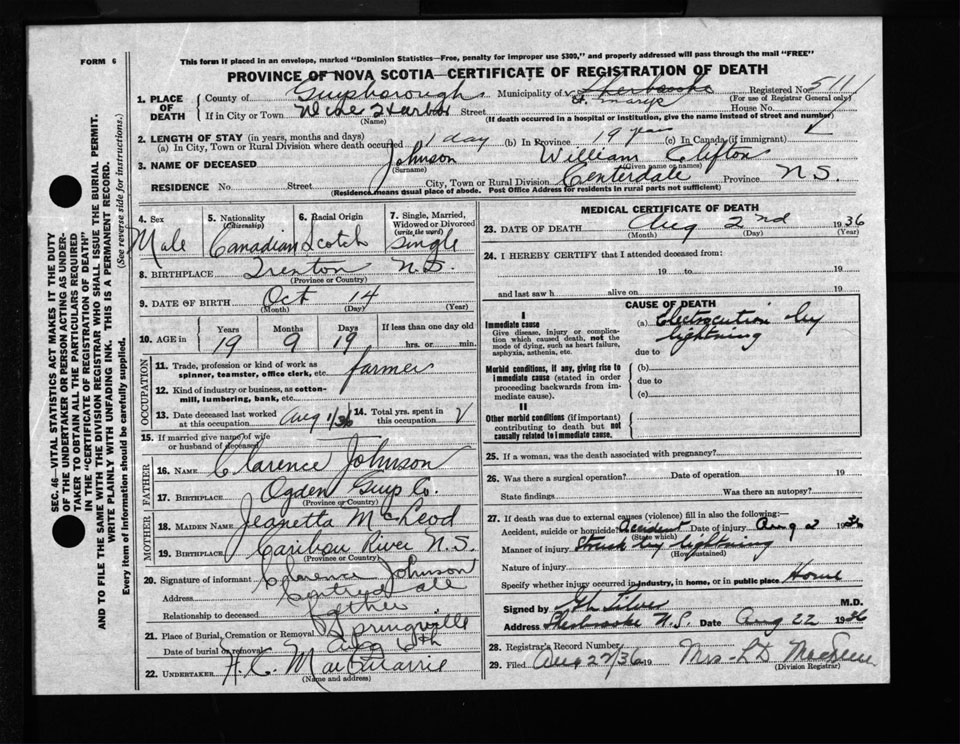 FORM 6
This form if placed in an envelope, marked "Dominion Statistics—Free, penalty for improper use $300," and properly addressed will pass through the mail "FREE"
PROVINCE OF NOVA SCOTIA—CERTIFICATE OF REGISTRATION OF DEATH
1. PLACE OF DEATH
County of Guysborough Municipality of Sherbrooke St. Marys Registered No. 5111
(For use of Registrar General only)
If in City or Town Wine Harbor Street House No.
(Name) (If death occurred in a hospital or institution, give the name instead of street and number)
2. LENGTH OF STAY (in years, months and days)
(a) In City, Town or Rural Division where death occurred 1 day (b) In Province 19 years (c) In Canada (if immigrant)
3. NAME OF DECEASED Johnson William Clifton
(Surname) (Given name or names)
RESIDENCE No. Street City, Town or Rural Division Centerdale Province N.S.
(Residence means usual place of abode. Post Office Address for residents in rural parts not sufficient)
4. Sex Male
5. Nationality (Citizenship) Canadian
6. Racial Origin Scotch
7. Single, Married, Widowed or Divorced (write the word) Single
8. BIRTHPLACE Trenton N.S.
(Province or Country)
9. DATE OF BIRTH Oct 14
(Month) (Day) (Year)
10. AGE in Years Months Days If less than one day old
19 9 19 hrs. or min.
OCCUPATION
11. Trade, profession or kind of work as spinner, teamster, office clerk, etc. farmer
12. Kind of industry or business, as cotton-mill, lumbering, bank, etc.
13. Date deceased last worked at this occupation Aug 1/36
14. Total yrs. spent in this occupation
15. If married give name of wife or husband of deceased
FATHER
16. NAME Clarence Johnson
17. BIRTHPLACE Ogden Guys Co.
(Province or Country)
MOTHER
18. MAIDEN NAME Jeanetta McLeod
19. BIRTHPLACE Caribou River N.S.
(Province or Country)
20. Signature of informant Clarence Johnson
Address Centredale
Relationship to deceased Father
21. Place of Burial, Cremation or Removal Springville
Date of burial or removal Aug 6th
22. UNDERTAKER
(Name and address)
MEDICAL CERTIFICATE OF DEATH
23. DATE OF DEATH Aug 2nd 1936
(Month) (Day) (Year)
24. I HEREBY CERTIFY that I attended deceased from:
19 to 19
and last saw h alive on 19
CAUSE OF DEATH
I
Immediate cause
Give disease, injury or complication which caused death, not the mode of dying, such as heart failure, asphyxia, asthenia, etc.
(a) Electrocution by lightning
due to
Morbid conditions, if any, giving rise to immediate cause (stated in order proceeding backwards from immediate cause).
(b)
due to
(c)
II
Other morbid conditions (if important) contributing to death but not causally related to immediate cause.
25. If a woman, was the death associated with pregnancy?
26. Was there a surgical operation? Date of operation 19
State findings Was there an autopsy?
27. If death was due to external causes (violence) fill in also the following:
Accident, suicide or homicide? Accident Date of injury Aug 2 1936
(State which)
Manner of injury Struck by lightning
(How sustained)
Nature of injury
Specify whether injury occurred in industry, in home, or in public place Home
Signed by M.D.
Address Sherbrooke N.S. Date Aug 22 1936
28. Registrar's Record Number
29. Filed Aug 27/36 19
(Division Registrar)
SEC. 46—VITAL STATISTICS ACT MAKES IT THE DUTY
OF THE UNDERTAKER OR PERSON ACTING AS UNDER-
TAKER TO OBTAIN ALL THE PARTICULARS REQUIRED
IN THE "CERTIFICATE OF REGISTRATION OF DEATH"
AND TO FILE THE SAME WITH THE DIVISION REGISTRAR WHO SHALL ISSUE THE BURIAL PERMIT.
WRITE PLAINLY WITH UNFADING INK. THIS IS A PERMANENT RECORD.
Every item of Information should be carefully supplied. (See reverse side for instructions.)